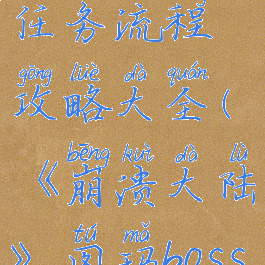 任务流程
gōng lüè dà quán
攻略大全(
bēng kuì dà lù
《崩溃大陆
tú mǎ
》图玛boss